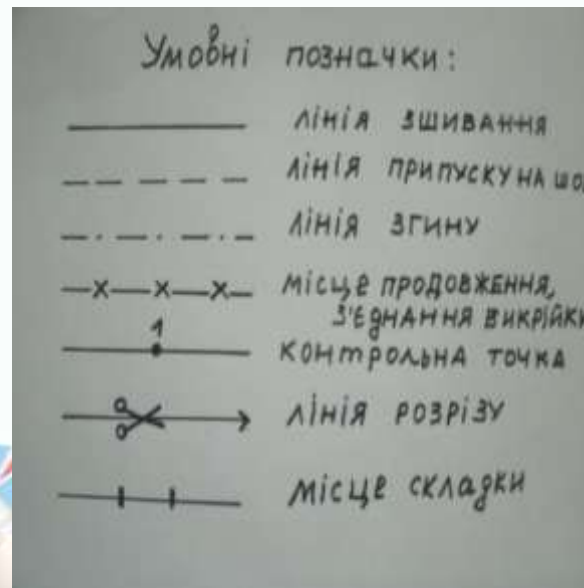 Умовні позначки:
лінія зшивання
лінія припуску на
лінія згину
місце продовження,
з'єднання викрійки
1
контрольна точка
лінія розрізу
місце складки